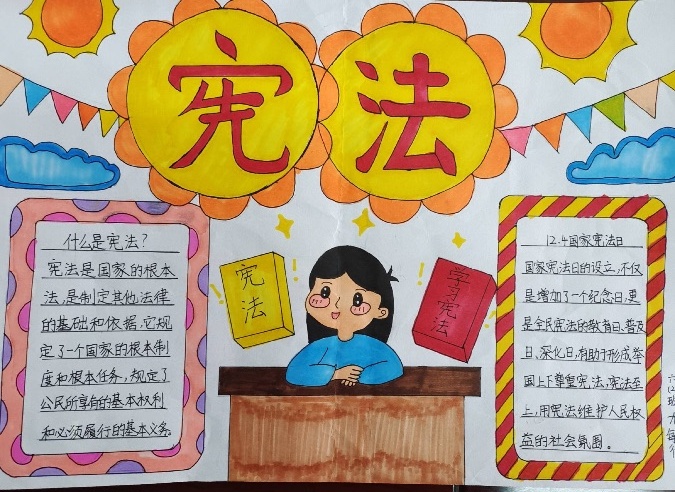 宪法
什么是宪法？
宪法是国家的根本
法，是制定其他法律
的基础和依据，它规
定了一个国家的根本制
度和根本任务，规定了
公民所享有的基本权利
和必须履行的基本义务
宪法
学习宪法
12.4国家宪法日
国家宪法日的设立，不仅
是增加了一个纪念日，更
是全民宪法的教育日、普及
日、深化日，有助于形成举
国上下尊重宪法，宪法至
上，用宪法维护人民权
益的社会氛围。